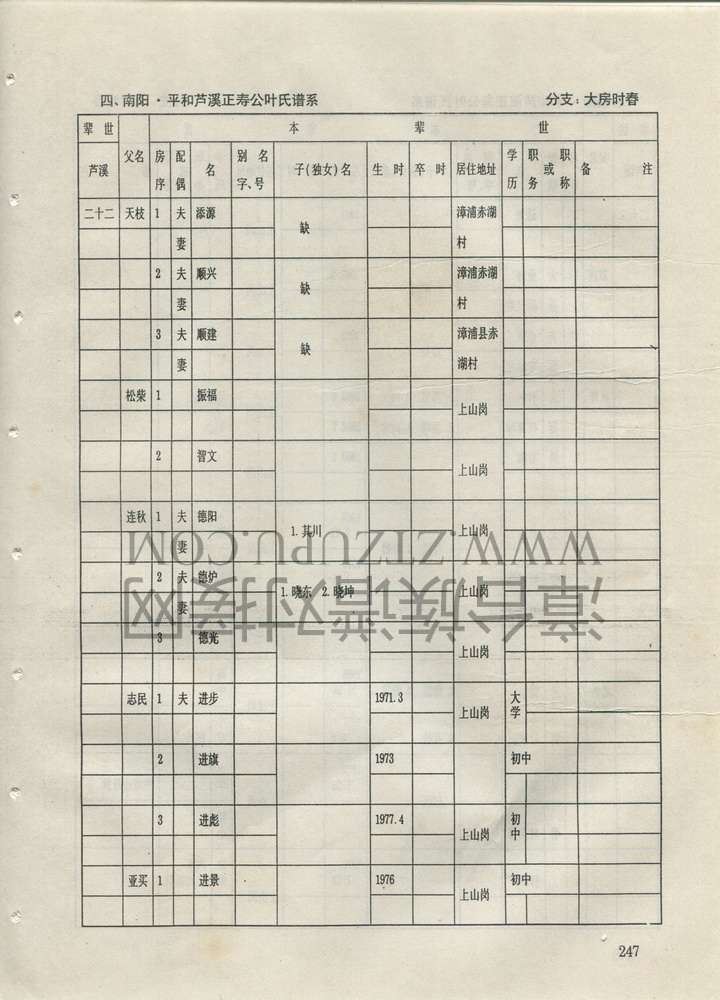 四、南阳·平和芦溪正寿公叶氏谱系 分支：大房时春
辈世 本辈世
芦溪 父名 房序 配偶 名 别名字、号 子(独女)名 生时 卒时 居住地址 学历 职务或职称 备注
二十二 天枝 1 夫 添源 缺 漳浦赤湖村
妻
2 夫 顺兴 缺 漳浦赤湖村
妻
3 夫 顺建 缺 漳浦县赤湖村
妻
松柴 1 振福 上山岗
2 智文 上山岗
连秋 1 夫 德阳 1.其川 上山岗
妻
2 夫 德炉 1.晓东 2.晓坤 上山岗
妻
3 德光 上山岗
志民 1 夫 进步 1971.3 上山岗 大学
2 进旗 1973 初中
3 进彪 1977.4 上山岗 初中
亚买 1 进景 1976 上山岗 初中
247
漳台族谱对接网
WWW.ZTZUPU.COM